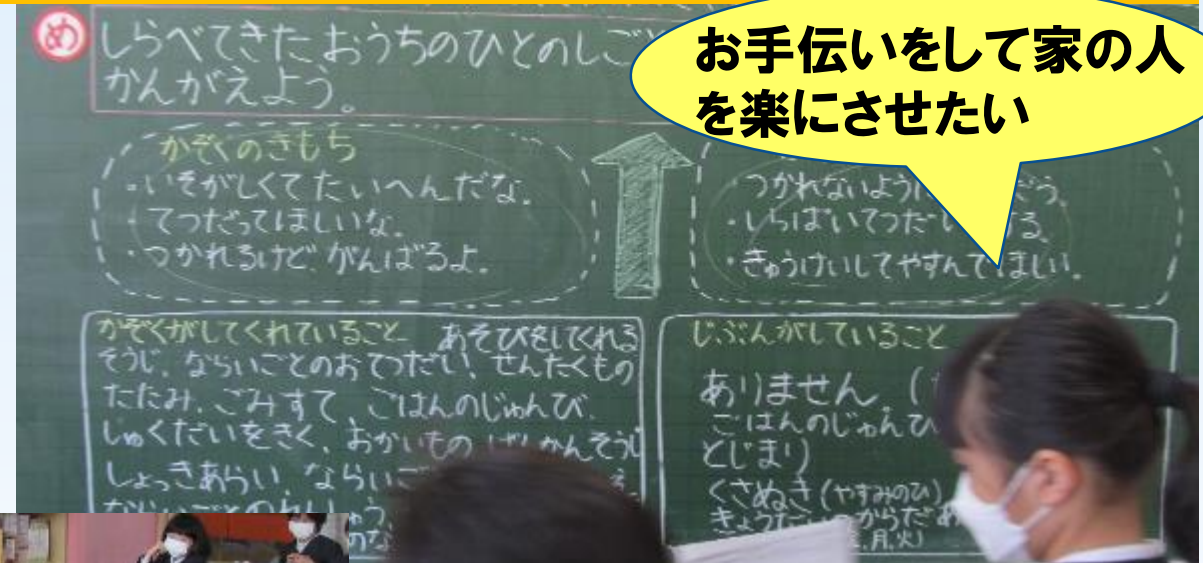 お手伝いをして家の人
を楽にさせたい
め
しらべてきたおうちのひとのしご
かんがえよう。
かぞくのきもち
・いそがしくてたいへんだな。
・てつだってほしいな。
・つかれるけどがんばるよ。
・つかれないように
・いっぱいてつだい する。
・きゅうけいしてやすんでほしい。
かぞくがしてくれていること あそびをしてくれる
そうじ、ならいごとのおてつだい、せんたくもの
たたみ、ごみすて、ごはんのじゅんび、
しゅくだいをきく、おかいもの、げんかんそうじ
しょっきあらい ならいご
じぶんがしていること
ありません (
ごはんのじゅんび
とじまり)
くさぬき(やすみのひ)
きょうだい
月、火)